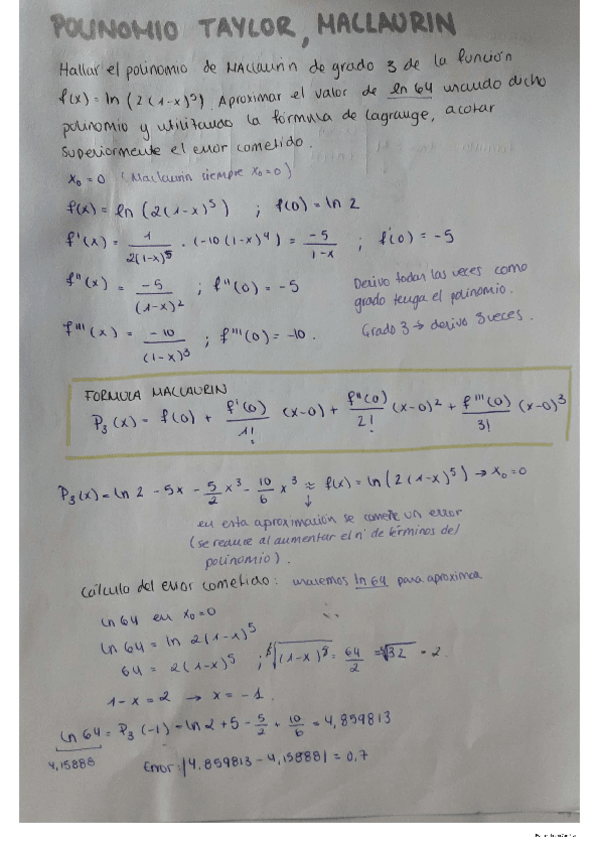 POLINOMIO TAYLOR, MACLAURIN
Hallar el polinomio de MAclaurin de grado 3 de la función
f(x) = ln (2(1-x)⁵). Aproximar el valor de ln 64 usando dicho
polinomio y utilizando la fórmula de Lagrange, acotar
superiormente el error cometido.
x₀ = 0 (Maclaurin siempre x₀=0)
f(x) = ln (2(1-x)⁵) ; f(0) = ln 2
f'(x) = 1/2(1-x)⁵ · (-10(1-x)⁴) = -5/1-x ; f'(0) = -5
f''(x) = -5/(1-x)² ; f''(0) = -5
Derivo todas las veces como
grado tenga el polinomio.
f'''(x) = -10/(1-x)³ ; f'''(0) = -10.
Grado 3 → derivo 3 veces.
FORMULA MACLAURIN
P₃(x) = f(0) + f'(0)/1! (x-0) + f''(0)/2! (x-0)² + f'''(0)/3! (x-0)³
P₃(x) = ln 2 - 5x - 5/2 x³ - 10/6 x³ ≈ f(x) = ln (2(1-x)⁵) → x₀=0
↓
en esta aproximación se comete un error
(se reduce al aumentar el nº de términos del
polinomio).
Cálculo del error cometido: usaremos ln 64 para aproximar
ln 64 en x₀=0
ln 64 = ln 2(1-x)⁵
64 = 2(1-x)⁵ ; ⁵√(1-x)⁵ = 64/2 = ⁵√32 = 2.
1-x = 2 → x = -1.
ln 64 = P₃(-1) = ln 2 + 5 - 5/2 + 10/6 = 4,859813
4,15888
Error: |4.859813 - 4,15888| = 0.7